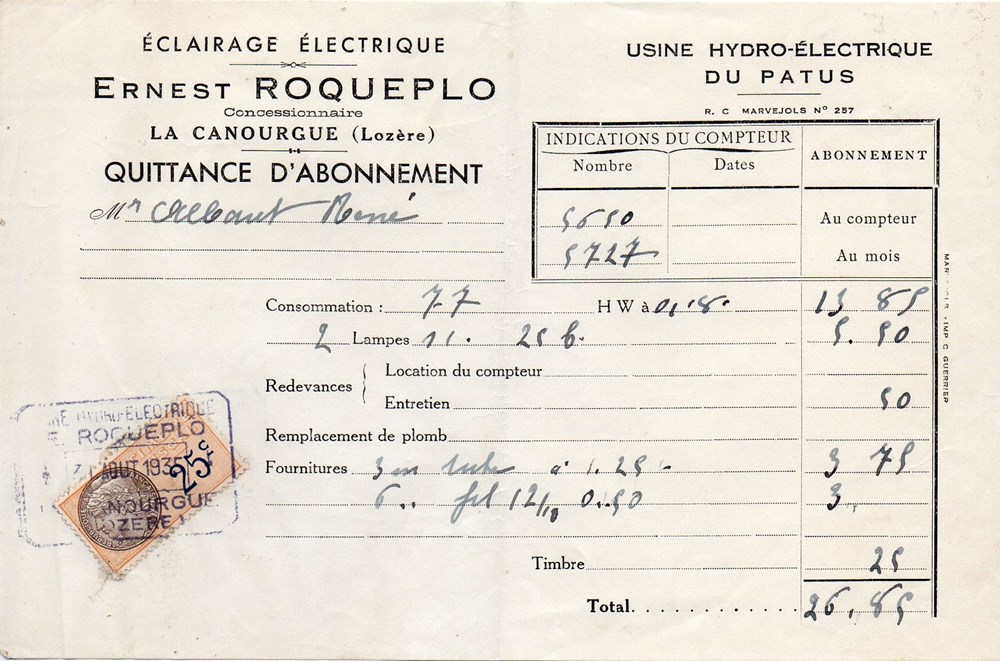 ÉCLAIRAGE ÉLECTRIQUE
ERNEST ROQUEPLO
Concessionnaire
LA CANOURGUE (Lozère)
QUITTANCE D'ABONNEMENT
Mr René
USINE HYDRO-ÉLECTRIQUE
DU PATUS
R. C MARVEJOLS No 257
INDICATIONS DU COMPTEUR
ABONNEMENT
Nombre Dates
5650 Au compteur
5727 Au mois
Consommation : 77 HW à 0,18. 13 85
2 Lampes 11. 25 b. 5.50
Redevances
Location du compteur
Entretien 50
Remplacement de plomb
Fournitures 3 m tube à 1.25 3 75
6 .. fil 12/10 0.50 3
Timbre 25
Total 26,85
IMP. C. GUERRIER
HYDRO-ELECTRIQUE
E. ROQUEPLO
AOUT 1935
25c
CANOURGUE
LOZERE